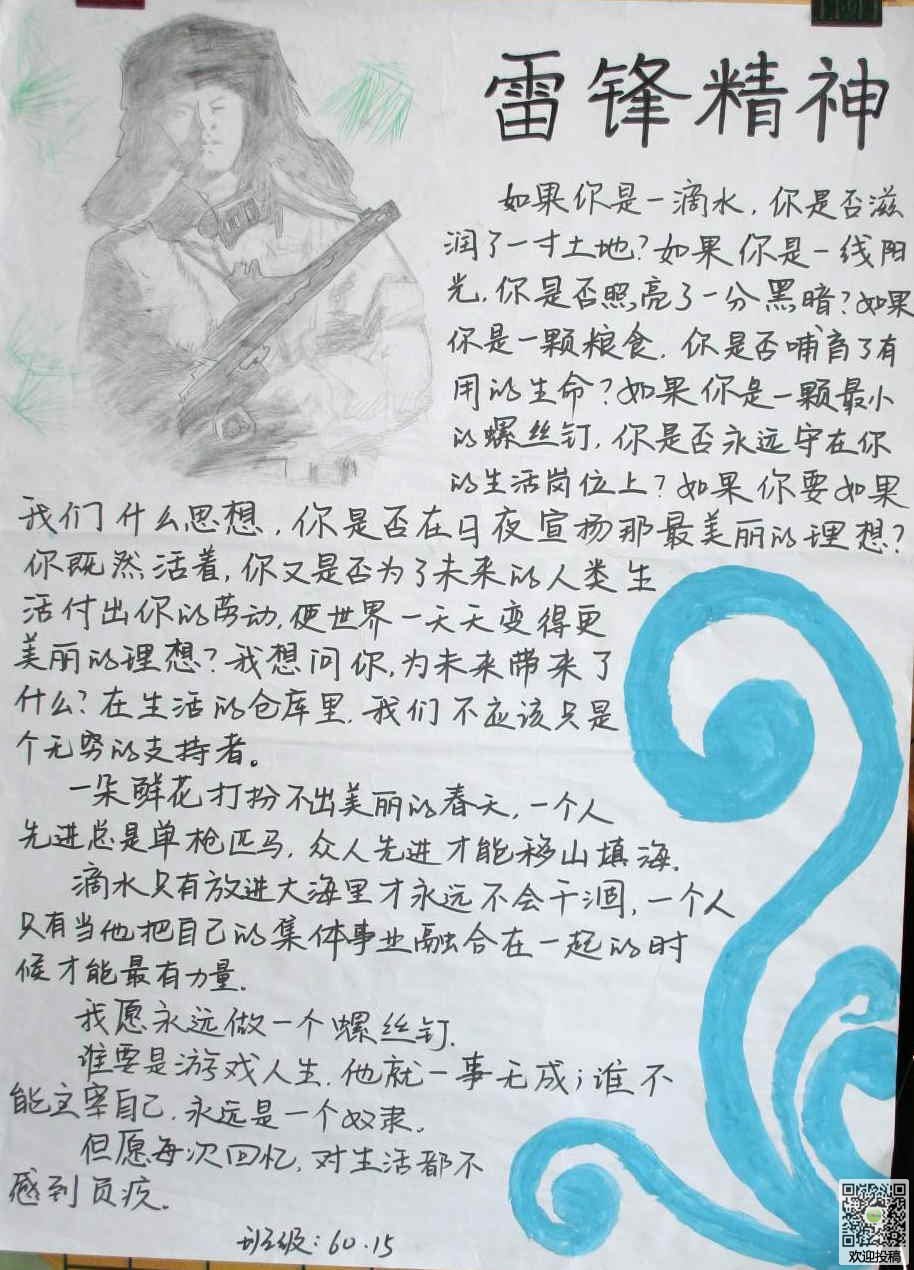 雷锋精神
如果你是一滴水，你是否滋
润了一寸土地？如果你是一线阳
光，你是否照亮了一分黑暗？如果
你是一颗粮食，你是否哺育了有
用的生命？如果你是一颗最小
的螺丝钉，你是否永远守在你
的生活岗位上？如果你要如果
我们什么思想，你是否在日夜宣扬那最美丽的理想？
你既然活着，你又是否为了未来的人类生
活付出你的劳动，使世界一天天变得更
美丽的理想？我想问你，为未来带来了
什么？在生活的仓库里，我们不应该只是
个无穷的支持者。
一朵鲜花打扮不出美丽的春天，一个人
先进总是单枪匹马，众人先进才能移山填海。
滴水只有放进大海里才永远不会干涸，一个人
只有当他把自己的集体事业融合在一起的时
候才能最有力量。
我愿永远做一个螺丝钉。
谁要是游戏人生，他就一事无成；谁不
能主宰自己，永远是一个奴隶。
但愿每次回忆，对生活都不
感到负疚。
班级：60.15
欢迎投稿